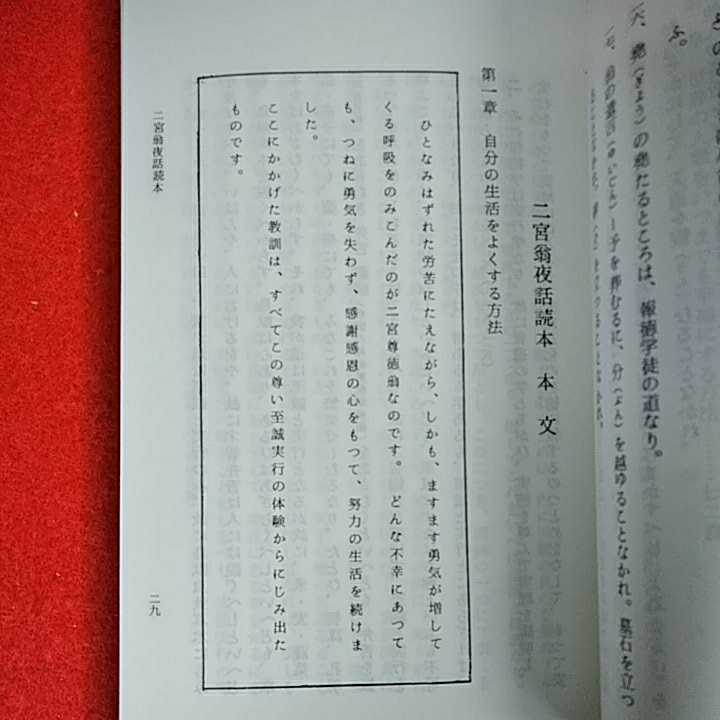 ふ。
堯（ぎょう）の堯たるところは、報徳学徒の道なり。
子を葬むるに、分（ぶん）を越ゆることなかれ。墓石を立つ
二宮翁夜話読本　本文
第一章　自分の生活をよくする方法
ひとなみはずれた労苦にたえながら、しかも、ますます勇気が増して
くる呼吸をのみこんだのが二宮尊徳翁なのです。どんな不幸にあつて
も、つねに勇気を失わず、感謝感恩の心をもつて、努力の生活を続けま
した。
ここにかかげた教訓は、すべてこの尊い至誠実行の体験からにじみ出た
ものです。
二宮翁夜話読本
二九